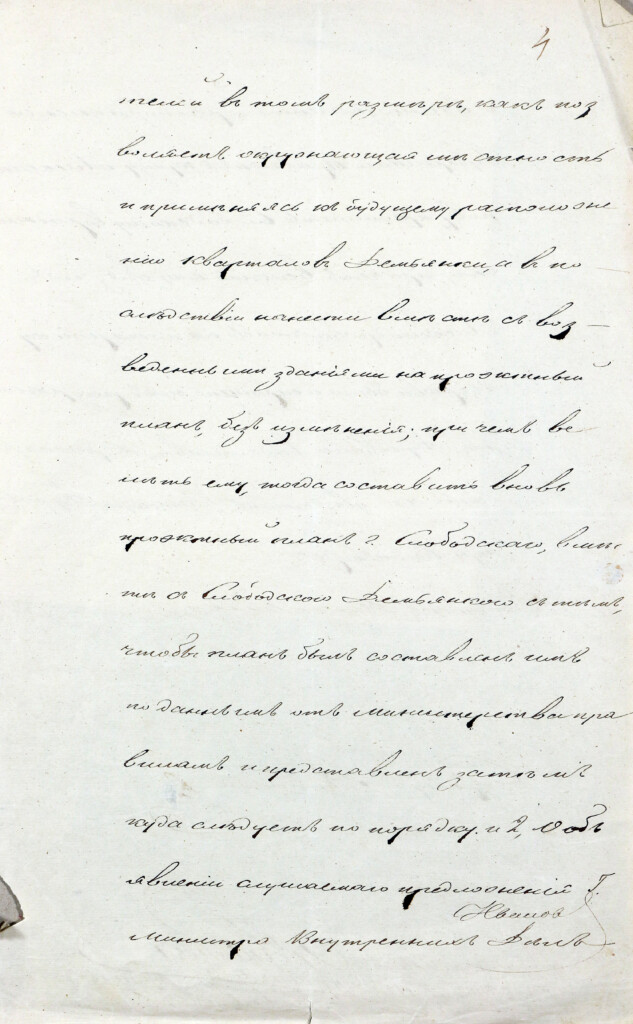 4
телей въ томъ размѣрѣ, какъ поз
воляетъ окружающая мѣстность
и примѣняясь къ будущему расположе
нію кварталовъ Демьянки, а въ по
слѣдствіи нанести вмѣстѣ съ воз-
веденными зданіями на проэктный
планъ, безъ измѣненія; при чемъ ве
лѣть ему, тогда составить вновь
проэктный планъ г. Слободскаго, вмѣс
тѣ съ Слободского Демьянкого съ тѣмъ,
чтобы планъ былъ составленъ имъ
по даннымъ отъ министерства пра
виламъ и представленъ затѣмъ
куда слѣдуетъ по порядку. и 2, о объ
явленіи слушаемаго предложенія Г.
Министра Внутреннихъ Дѣлъ
Ивановъ